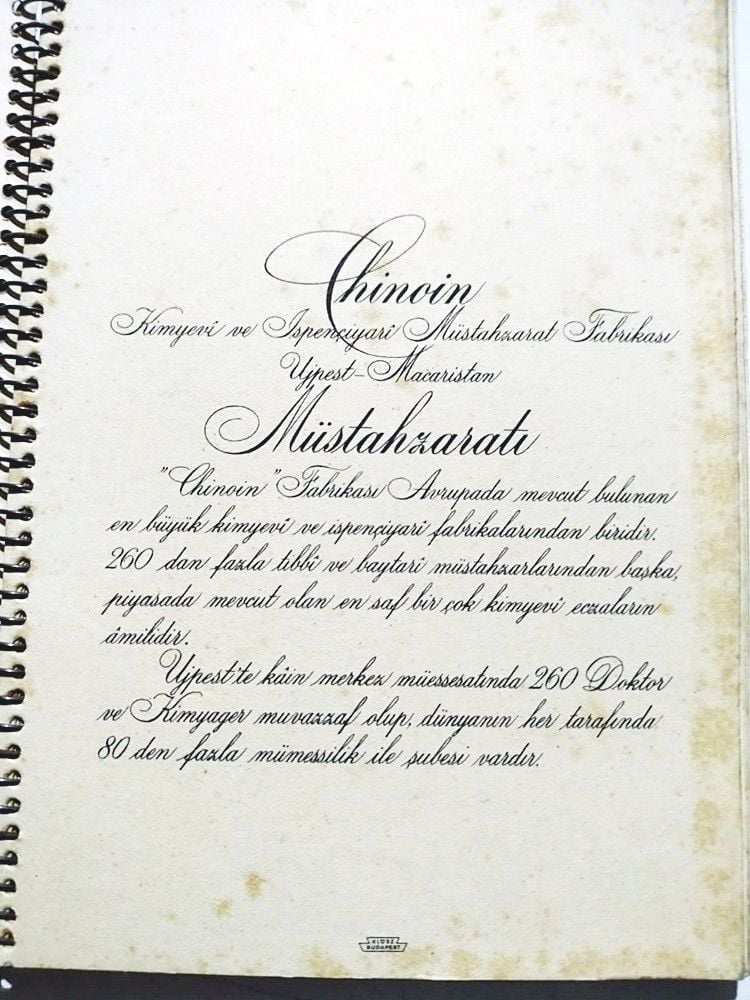 Chinoin
Kimyevî ve Ispençiyarî Müstahzarat Fabrikası
Ujpest-Macaristan
Müstahzaratı
"Chinoin" Fabrikası Avrupada mevcut bulunan
en büyük kimyevî ve ispençiyarî fabrikalarından biridir.
260 dan fazla tıbbî ve baytarî müstahzarlarından başka,
piyasada mevcut olan en saf bir çok kimyevî eczaların
âmilidir.
Ujpest'te kâin merkez müessesatında 260 Doktor
ve Kimyager muvazzaf olup, dünyanın her tarafında
80 den fazla mümessilik ile şubesi vardır.
KLÖSZ
BUDAPEST